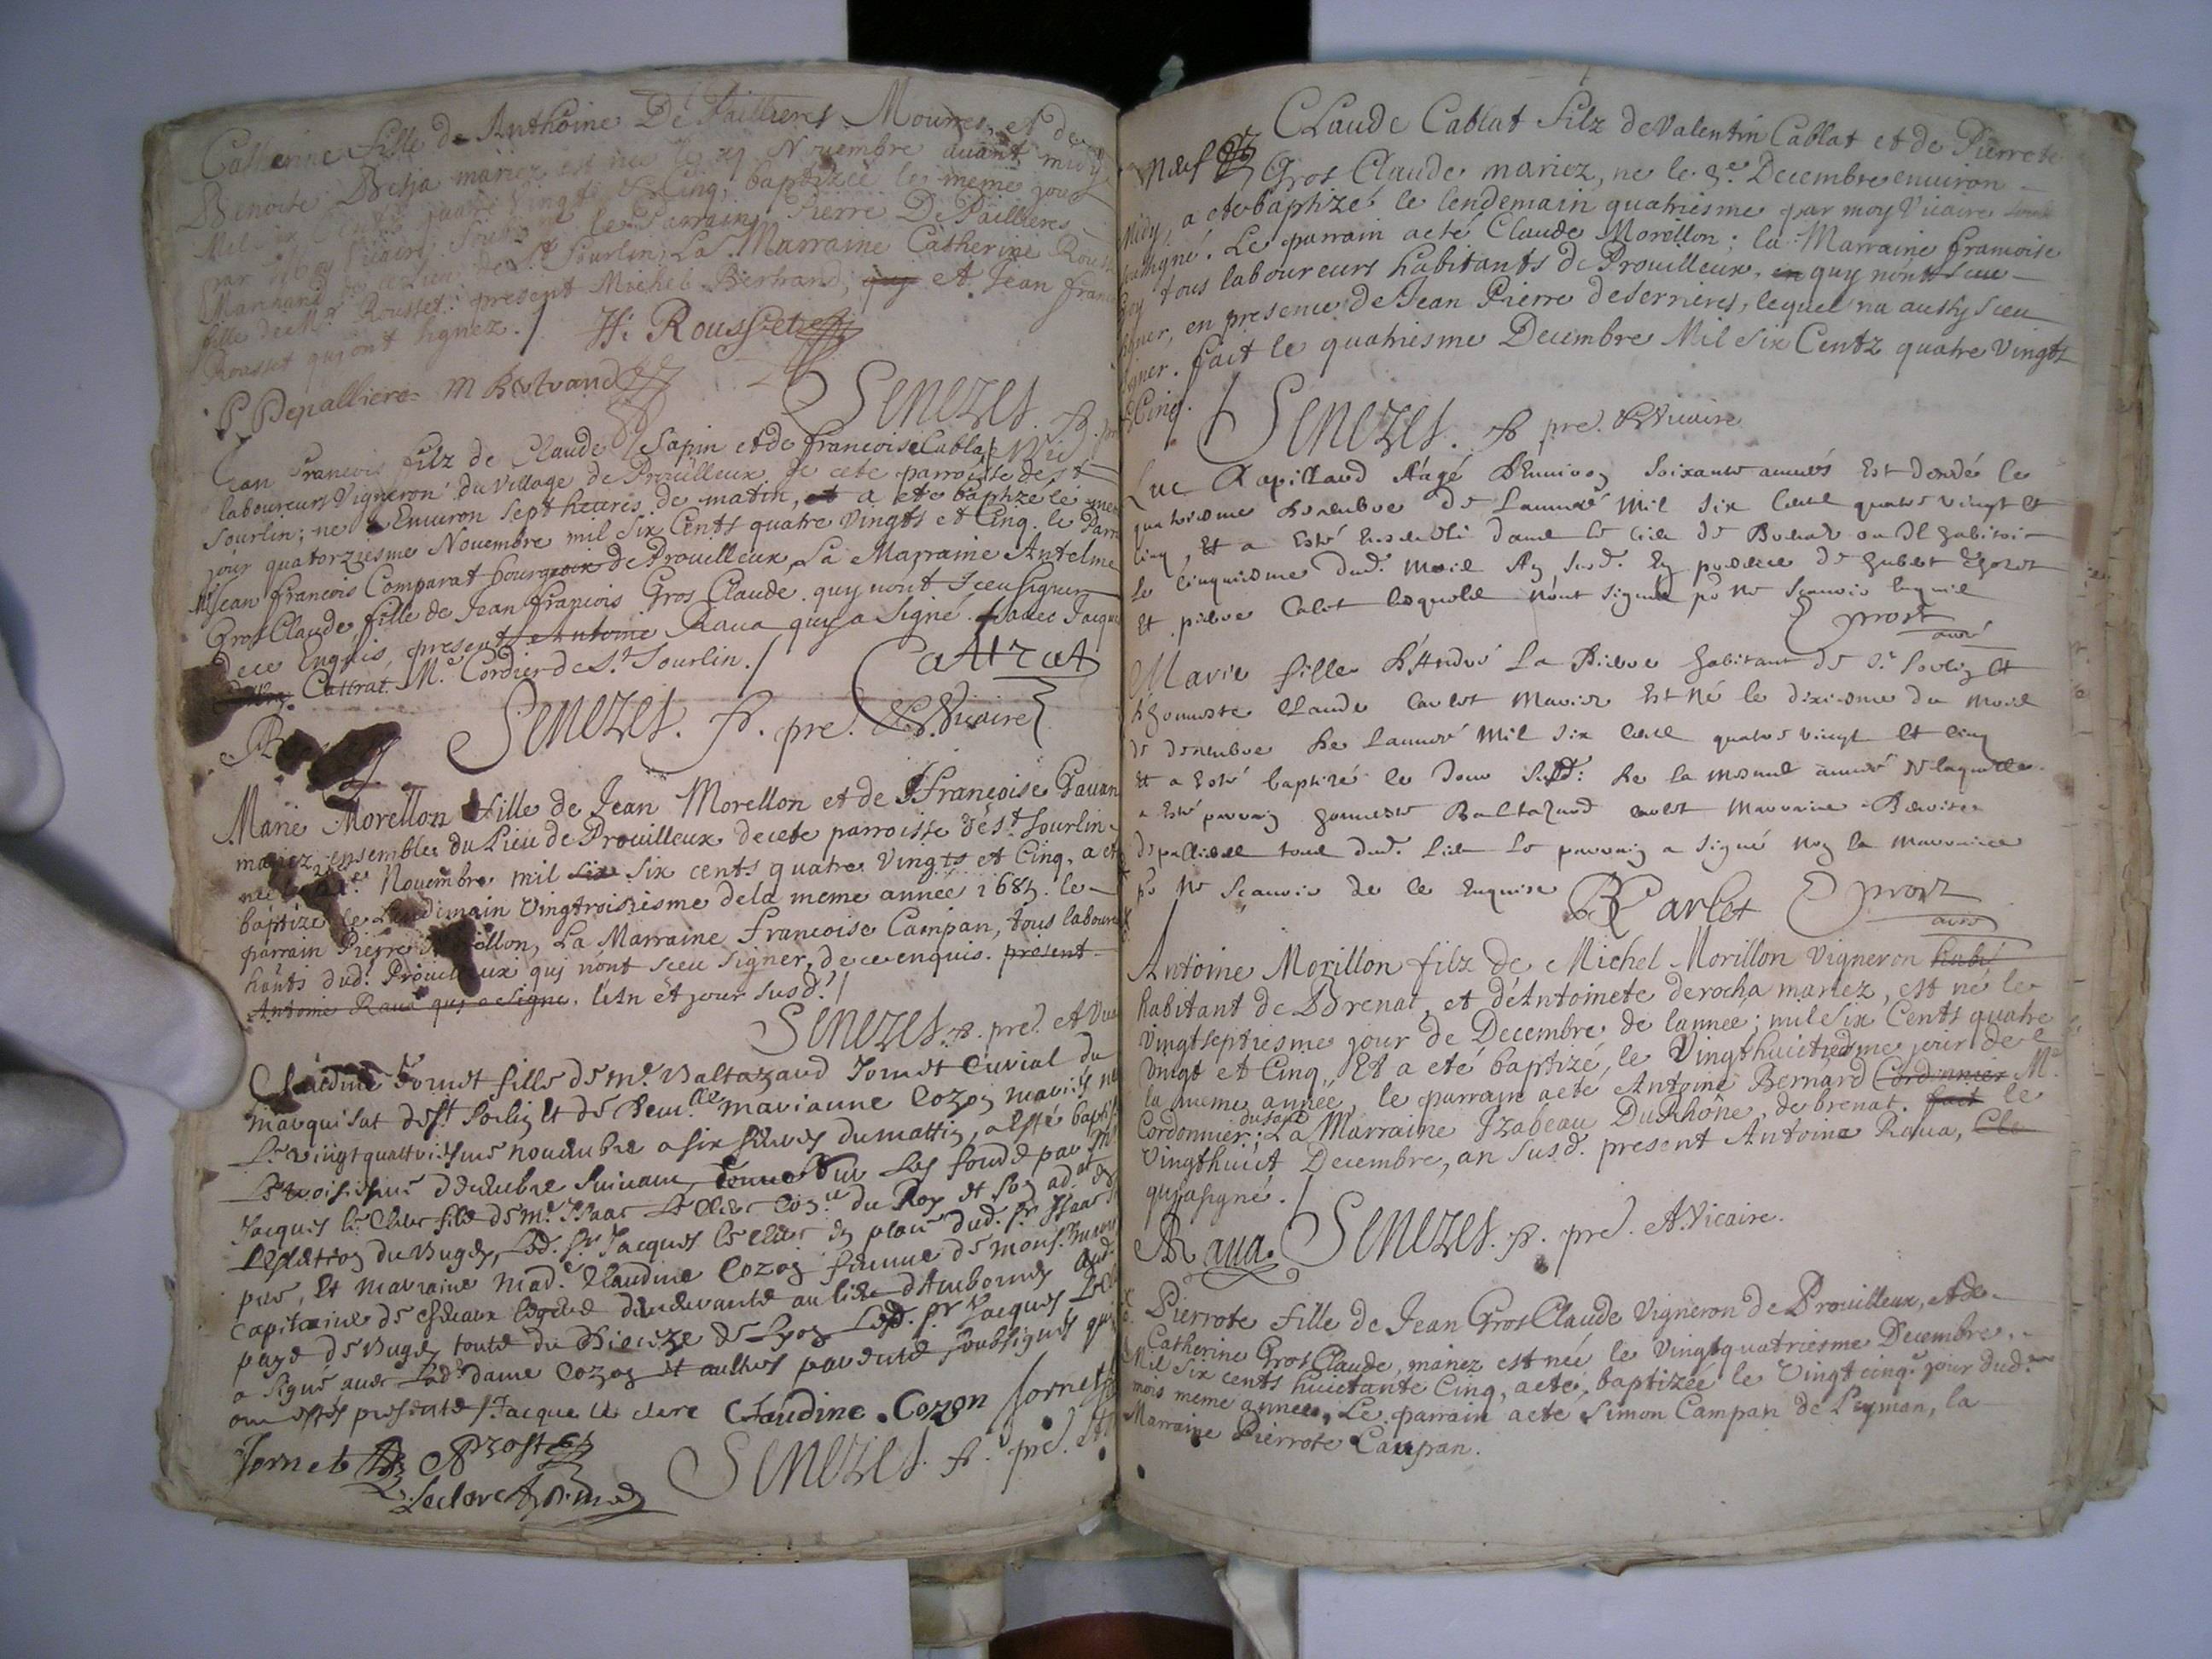 Catherine fille de Anthoine De Paillieres Mourres, et de
Benoite Besja mariez est née le Novembre auant midy
Mil six Cents quatre Vingts et Cinq, baptizée le meme jour
par Moy Vicaire soubsigné le Parrain Pierre De Paillieres
Marchand de St Sourlin, La Marraine Catherine
fille de Mr Rousset. present Michel Bertrand, quy et Jean francois
Rousset quy ont signez. /
H: Rousset
P Depalliere M Bertrand
Senezes. p. pre
Jean Francois filz de Claude Sapin et de francoise Cablat
laboureurs Vigneron du Village de Prouilleux de cete parroisse de St
Sourlin; ne Enuiron sept heures de matin, et a ete baptizé le meme
jour quatorziesme Nouembre mil six Cents quatre Vingts et Cinq. le Parr
Jean francois Comparat bourgeois de Prouilleux, La Marraine Antelme
Gros Claude fille de Jean francois Gros Claude. quy nont sceu signer
de ce Enquis, present Antoine Raua quy a signé. auec Jacque
Cattrat. Me Cordier de St Sourlin. /
Cattrat
Senezes. p. pre. et Vicaire
Marie Morellon fille de Jean Morellon et de Françoise Gauan
mariez ensembles du Lieu de Prouilleux de cete parroisse de St Sourlin
née le 22e Nouembre mil six six cents quatre Vingts et Cinq, a ete
baptize le Lendemain Vingtroisiesme de la meme année 1685. le
parrain Pierre Morellon, La Marraine francoise Campan, tous laboure
hants dud. Prouilleux quj nont sceu signer, de ce enquis. present
Antoine Raua quy a signe. l'An et jour susd. /
Senezes. p. pre. et Vic
Claudine Jornet fille de Me Baltazard Jornet Curial du
marquisat de St Sorlin et de Dem.lle marianne Cozon mariés
Le vingtquattriesme nouembre a six heures du mattin, a esté bapt
Le troisiesme decembre suiuant, sur Les fonds par
Jacques le Clerc fils de Me Isaac Le Clerc Con.er du Roy et son ad.at
l'Election du Bugey, Led. Sr Jacques le Clerc en place dud. Sr Isaac
pere, Et marraine mad.e Claudine Cozon femme de mons.
Capitaine de cheuaux legers demeurants au lieu d'Ambournay
pays de Bugey toute du Dioceze de Lyon Led. Sr Jacques Le
a signé auec Lad. dame Cozon et aultres parents soubsignés qui
ont estés presents / Jacque le clerc Claudine Cozon Jornet
Jornet Prost
Leclerc
Senezes. p. pre. et
CLaude Cablat filz de Valentin Cablat et de Pierrete
neuf Gros Claude mariez, ne le 3e Decembre enuiron
Midy, a ete baptizé le lendemain quatriesme par moy Vicaire
soussigné. Le parrain a eté Claude Morellon; la Marraine francoise
tous laboureurs habitants de Prouilleux, en quy nont sceu
signer, en presence de Jean Pierre deserrieres, lequel n'a aussy sceu
signer. fait le quatriesme Decembre Mil six Centz quatre Vingts
et Cinq. /
Senezes. p pre. et Vicaire
Luc Rapilland Aagé d'Enuiron soixante années Est decedé le
quatriesme decembre de l'année mil six Cents quatre vingt et
cinq, Et a Esté enseueli dans le
le cinquiesme dud. mois An susd. En presence de hubert
Et pierre Calet lesquels n'ont signé po ne scauoir Enquis
Prost
curé
Marie fille d'André La Pierre habitant de St Sorlin et
d'honneste Claude Carlet mariez Est né le dixiesme du mois
de decembre de l'année mil six Cents quatre vingt Et cinq
Et a Esté baptizé le Jour susd: de la mesme année de laquelle
a Esté parrain honneste Baltazard Carlet marraine
depalliere tous dud. lieu le parrain a signé non la marraine
po ne scauoir de ce Enquise
B Carlet Prost
curé
Antoine Morillon filz de Michel Morillon Vigneron habi
habitant de Brenat, et d'Antoinete derocha mariez, est né le
Vingtseptiesme jour de Decembre de lannee; mil six Cents quatre
Vingt et Cinq, Et a eté baptizé, le Vingthuictiesme jour de
la meme année, le parrain a eté Antoine Bernard Cordonnier Me
Cordonnier; du lieu La Marraine Izabeau Du Rhône, de brenat. fait le
Vingthuict Decembre, an susd. present Antoine Raua, Cle
quj a signé. /
A Raua. Senezes. p. pre. et Vicaire.
Pierrote fille de Jean Gros Claude Vigneron de Prouilleux, et de
Catherine Gros Claude, mariez est née le Vingtquatriesme Decembre,
Mil six cents huictante Cinq, a eté, baptizée le Vingt cinqe jour dud.
mois meme annee, Le parrain a eté Simon Campan de Leyman, la
Marraine Pierrote Campan.